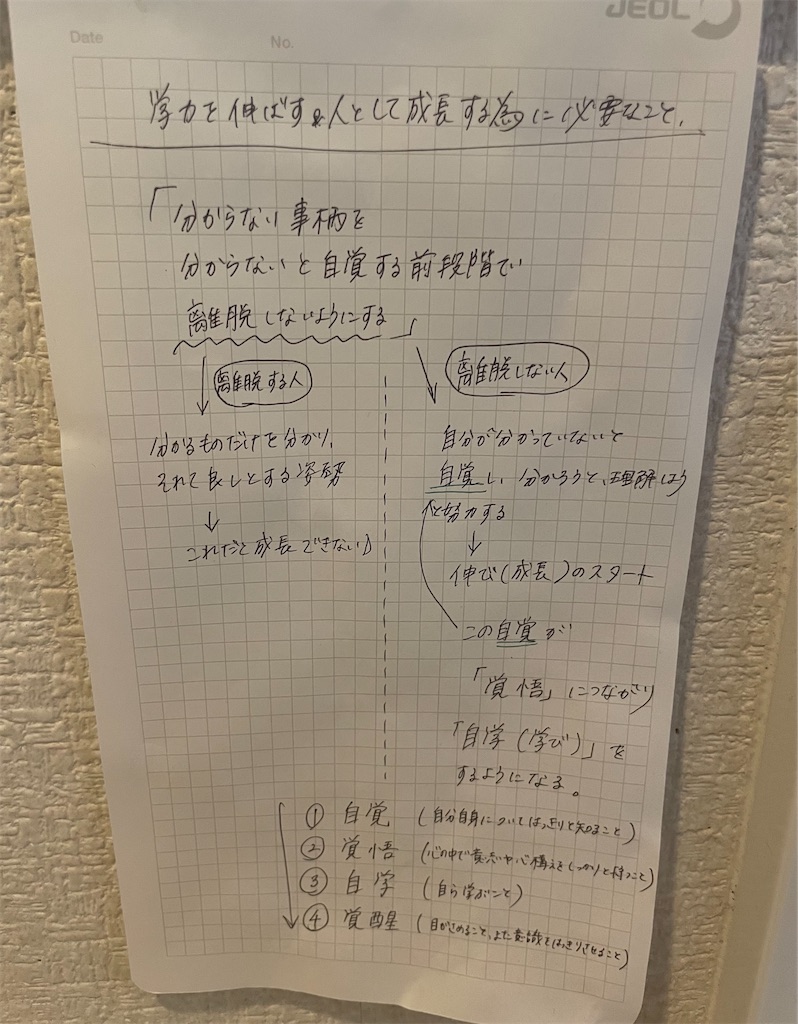 JEOL
Date
No.
学力を伸ばす&人として成長する為に必要なこと、
「分からない事柄を
分からないと自覚する前段階で
離脱しないようにする」
離脱する人
分かるものだけを分かり、
それで良しとする姿勢
↓
これだと成長できない♪
離脱しない人
自分が分かっていないと
自覚し、分かろうと、理解しよう
と努力する
↓
伸び(成長)のスタート
この自覚が
「覚悟」につながり
「自学(学び)」を
するようになる。
① 自覚 (自分自身についてはっきりと知ること)
② 覚悟 (心の中で意志や心構えをしっかりと持つこと)
③ 自学 (自ら学ぶこと)
④ 覚醒 (目がさめること、また意識をはっきりさせること)